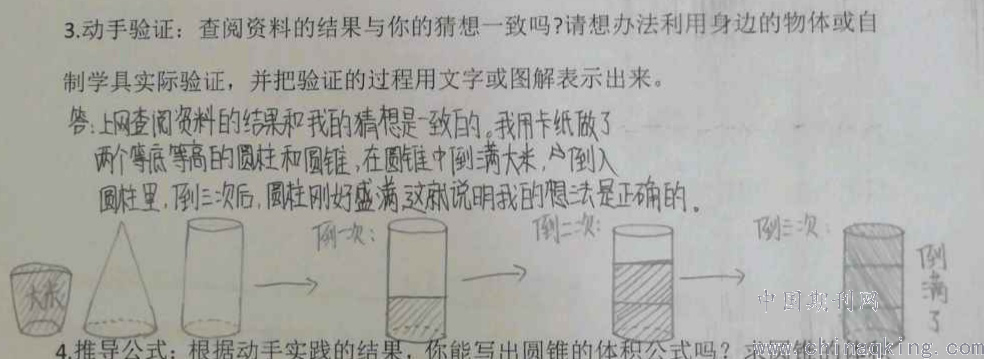 3.动手验证：查阅资料的结果与你的猜想一致吗?请想办法利用身边的物体或自
制学具实际验证，并把验证的过程用文字或图解表示出来。
答：上网查阅资料的结果和我的猜想是一致的。我用卡纸做了
两个等底等高的圆柱和圆锥，在圆锥中倒满大米，倒入
圆柱里，倒三次后，圆柱刚好盛满，这就说明我的想法是正确的。
倒一次：
倒二次：
倒三次：
大米
倒满了
中国期刊网
www.chinaqking.com
4.推导公式：根据动手实践的结果，你能写出圆锥的体积公式吗？求